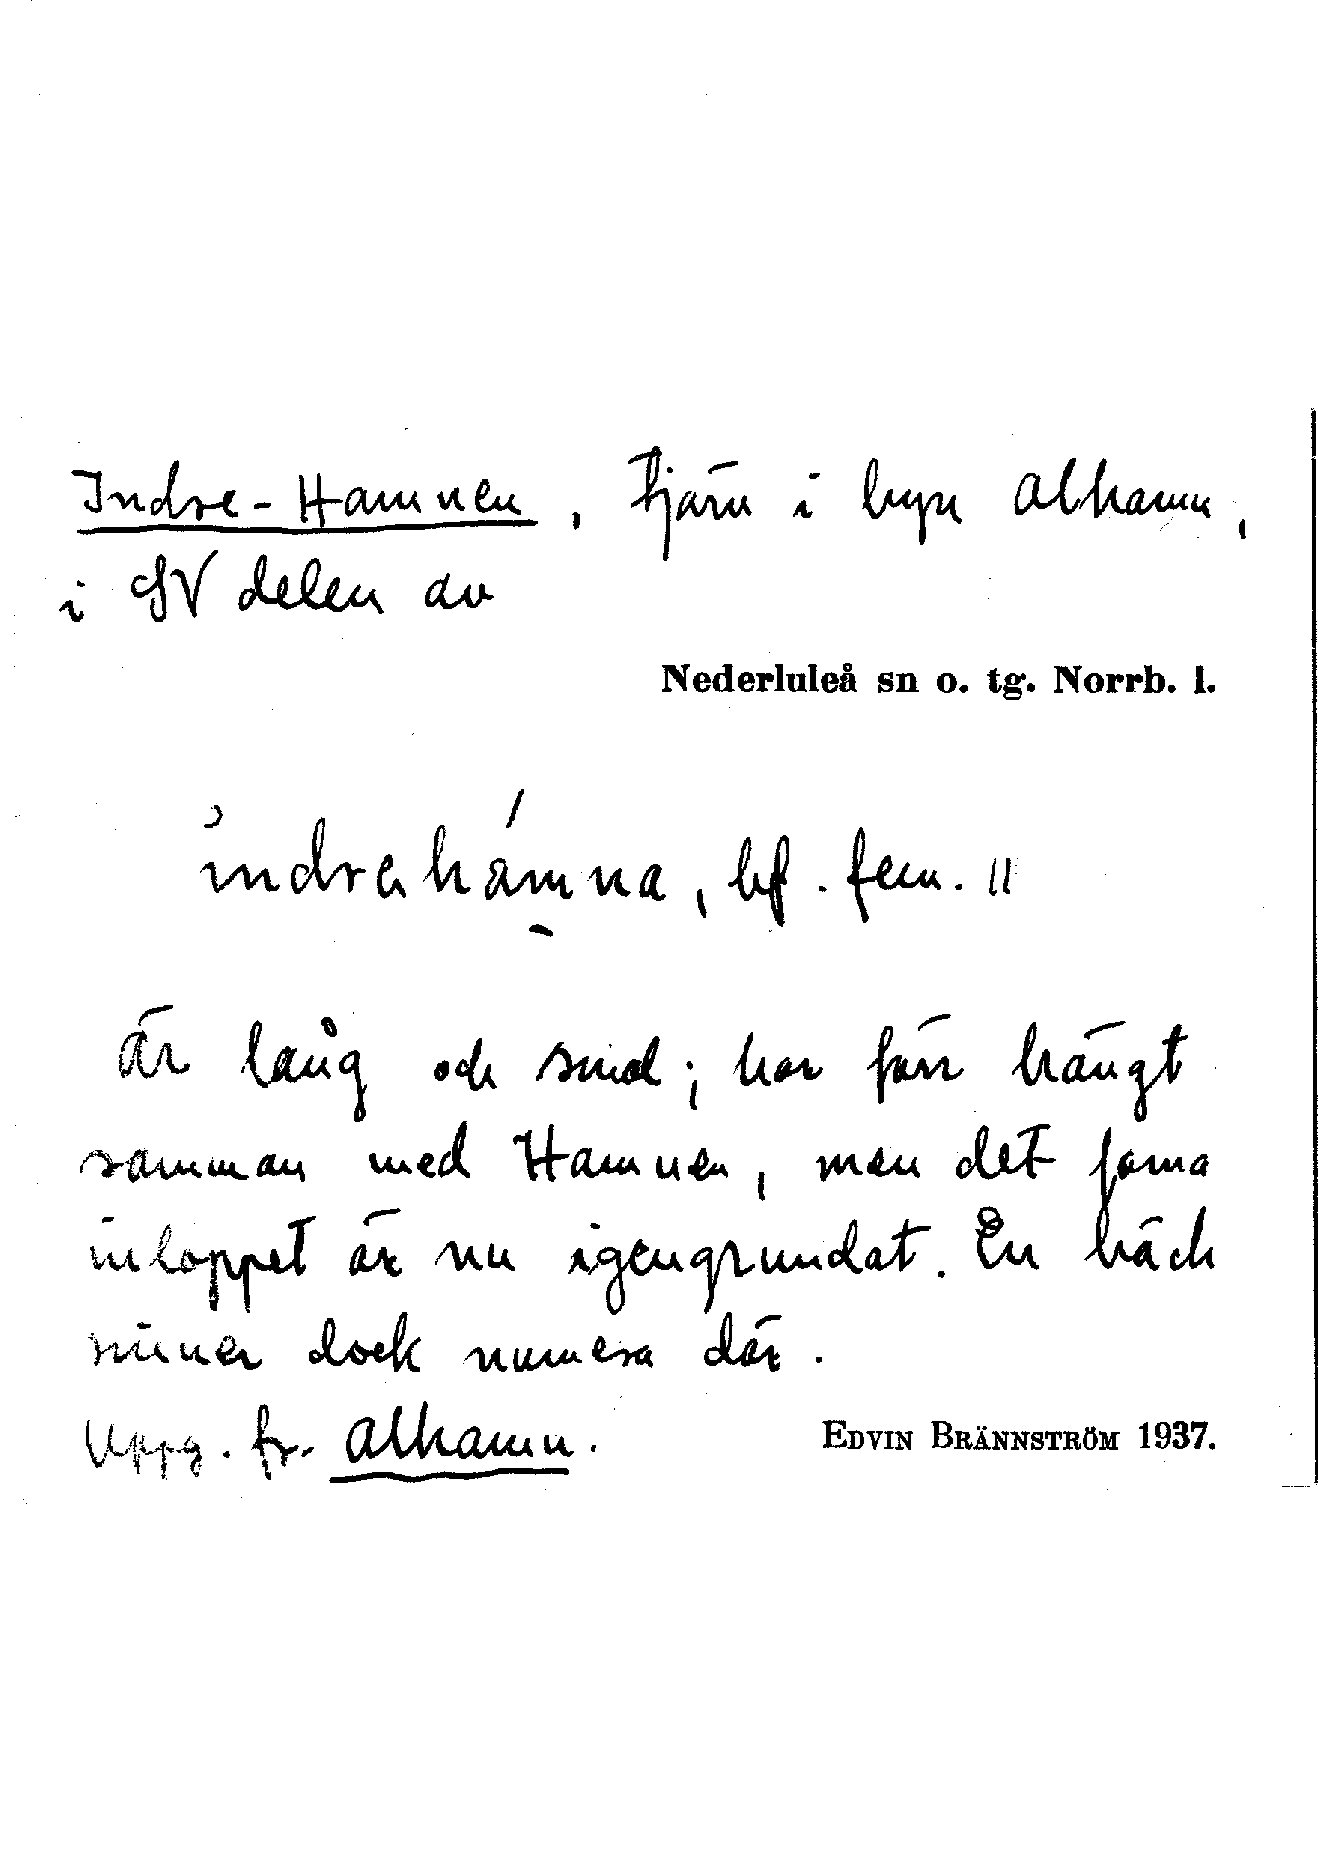 Indre-Hamnen, tjärn i byn Alhamn,
i SV delen av
Nederluleå sn o. tg. Norrb. l.
indrehámna, bf. fem. ||
är lång och smal; har förr hängt
samman med Hamnen, men det forna
inloppet är nu igengrundat. En bäck
rinner dock numera där.
Uppg. fr. Alhamn.
EDVIN BRÄNNSTRÖM 1937.